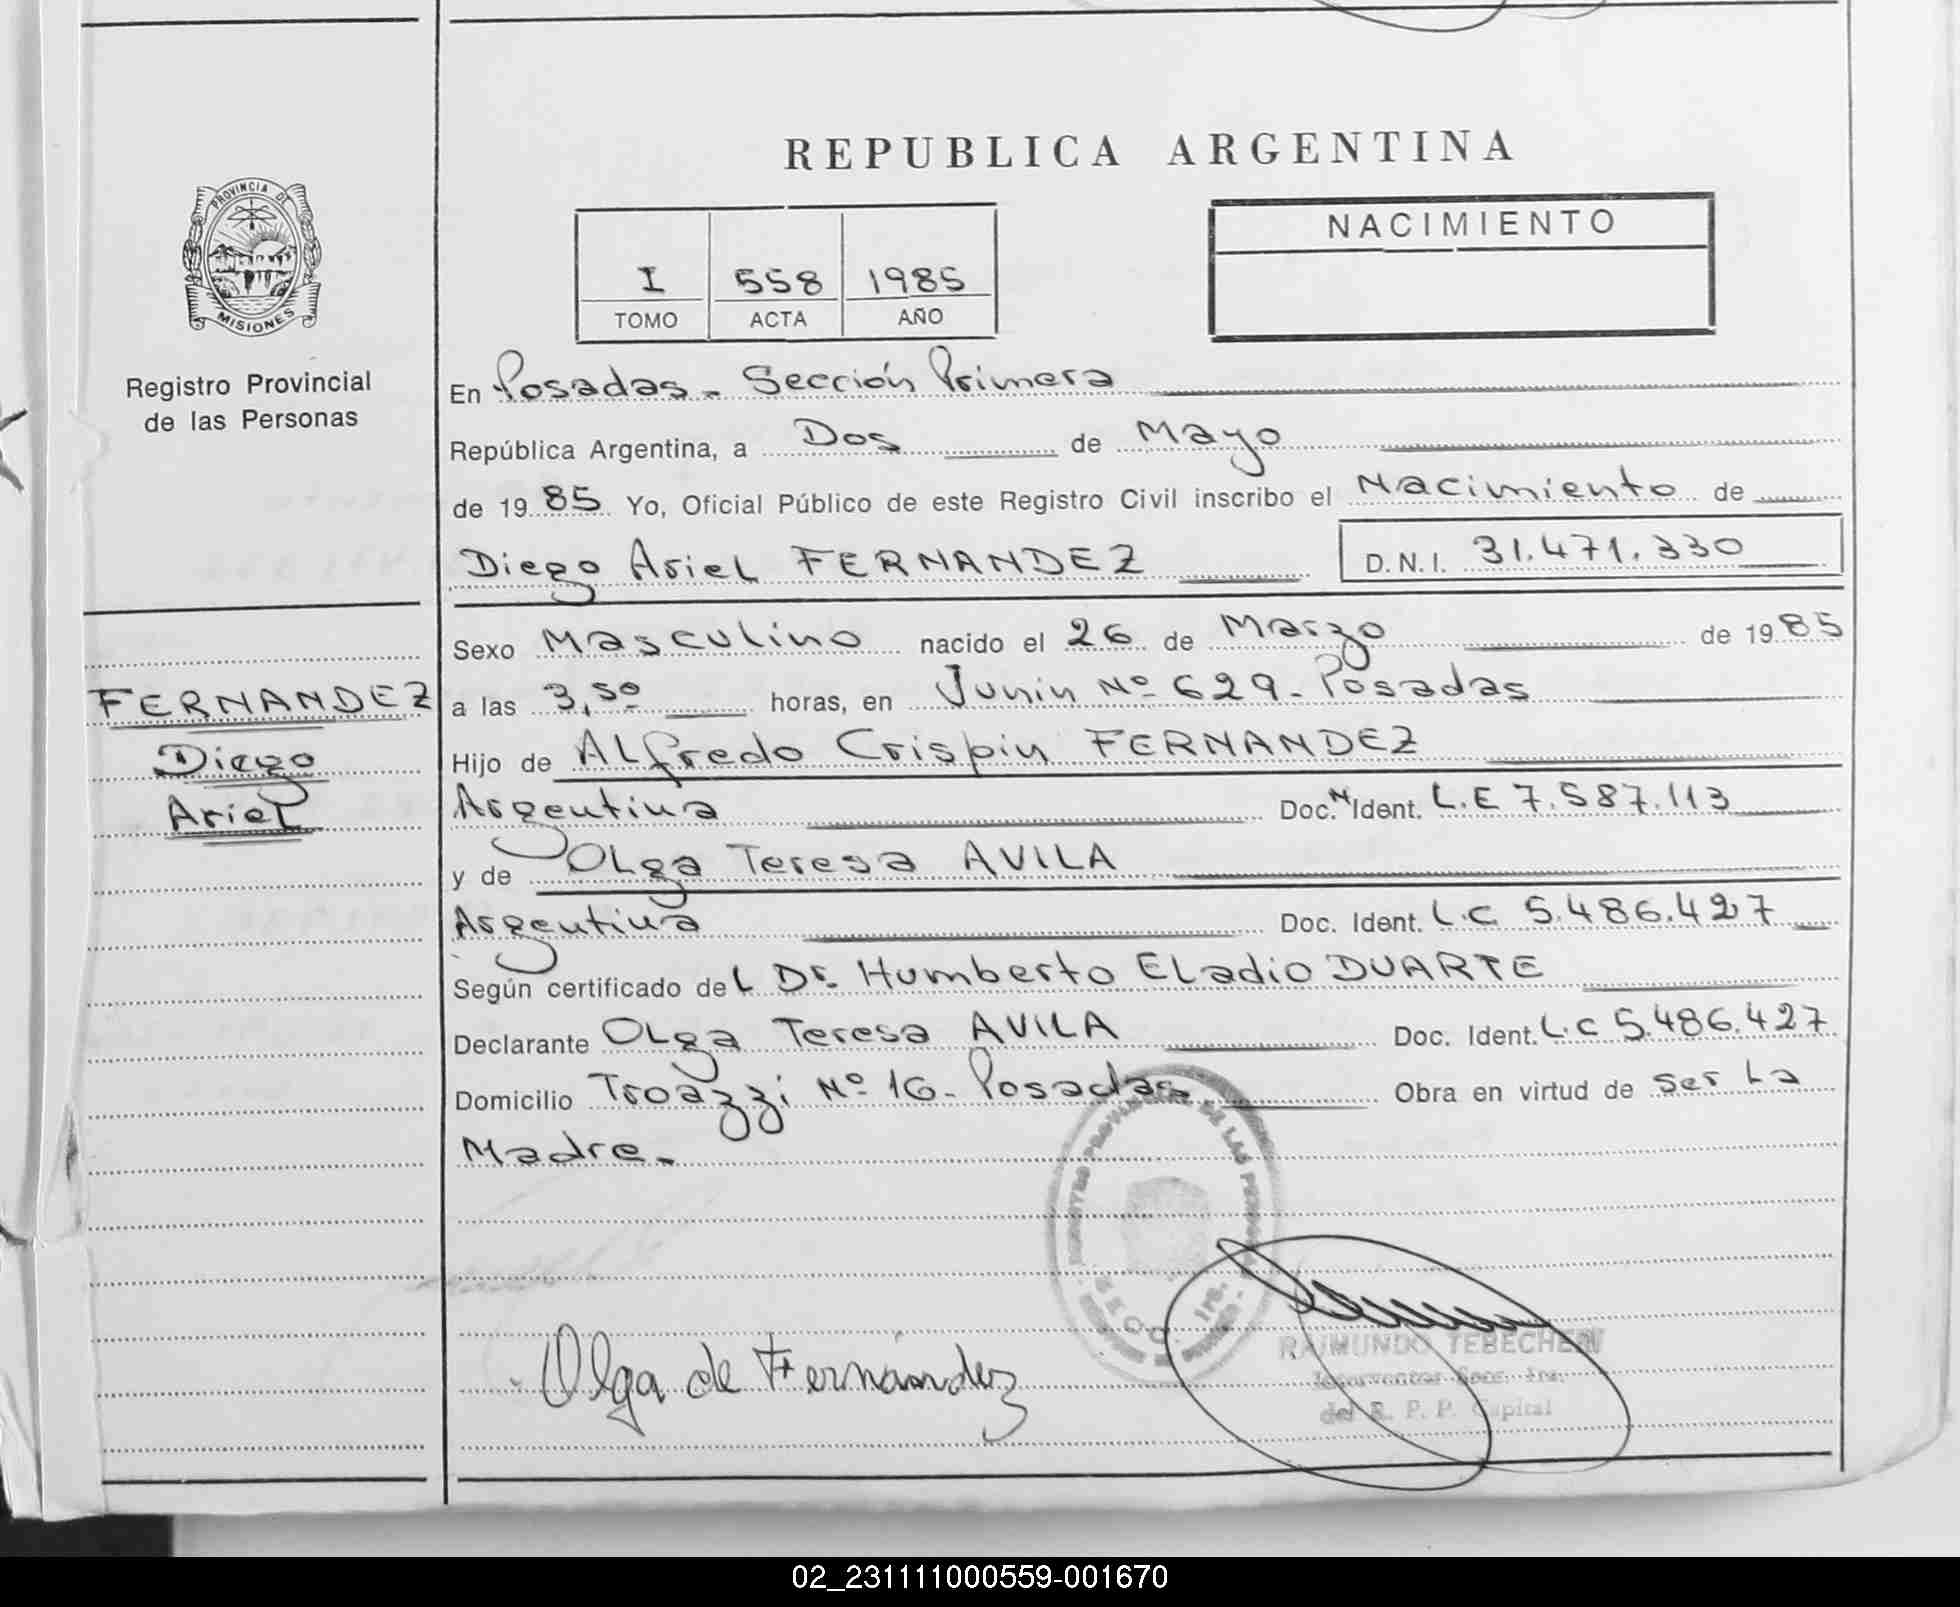 REPUBLICA ARGENTINA
PROVINCIA DE
MISIONES
Registro Provincial
de las Personas
I 558 1985
TOMO ACTA AÑO
NACIMIENTO
En Posadas - Sección Primera
República Argentina, a Dos de Mayo
de 19 85 Yo, Oficial Público de este Registro Civil inscribo el Nacimiento de
Diego Ariel FERNANDEZ D.N.I. 31.471.330
FERNANDEZ
Diego
Ariel
Sexo Masculino nacido el 26 de Marzo de 19 85
a las 3,50 horas, en Junín Nº 629 - Posadas
Hijo de Alfredo Crispin FERNANDEZ
Argentina Doc. N Ident. L.E 7.587.113
y de Olga Teresa AVILA
Argentina Doc. Ident. L.C 5.486.427
Según certificado del Dr. Humberto Eladio DUARTE
Declarante Olga Teresa AVILA Doc. Ident. L.C 5.486.427
Domicilio Troazzi Nº 16 - Posadas Obra en virtud de ser La
Madre -
Olga de Fernández
RAIMUNDO TEBECHERI
Interventor Secc. 1ra.
del R. P. P. Capital
02_231111000559-001670